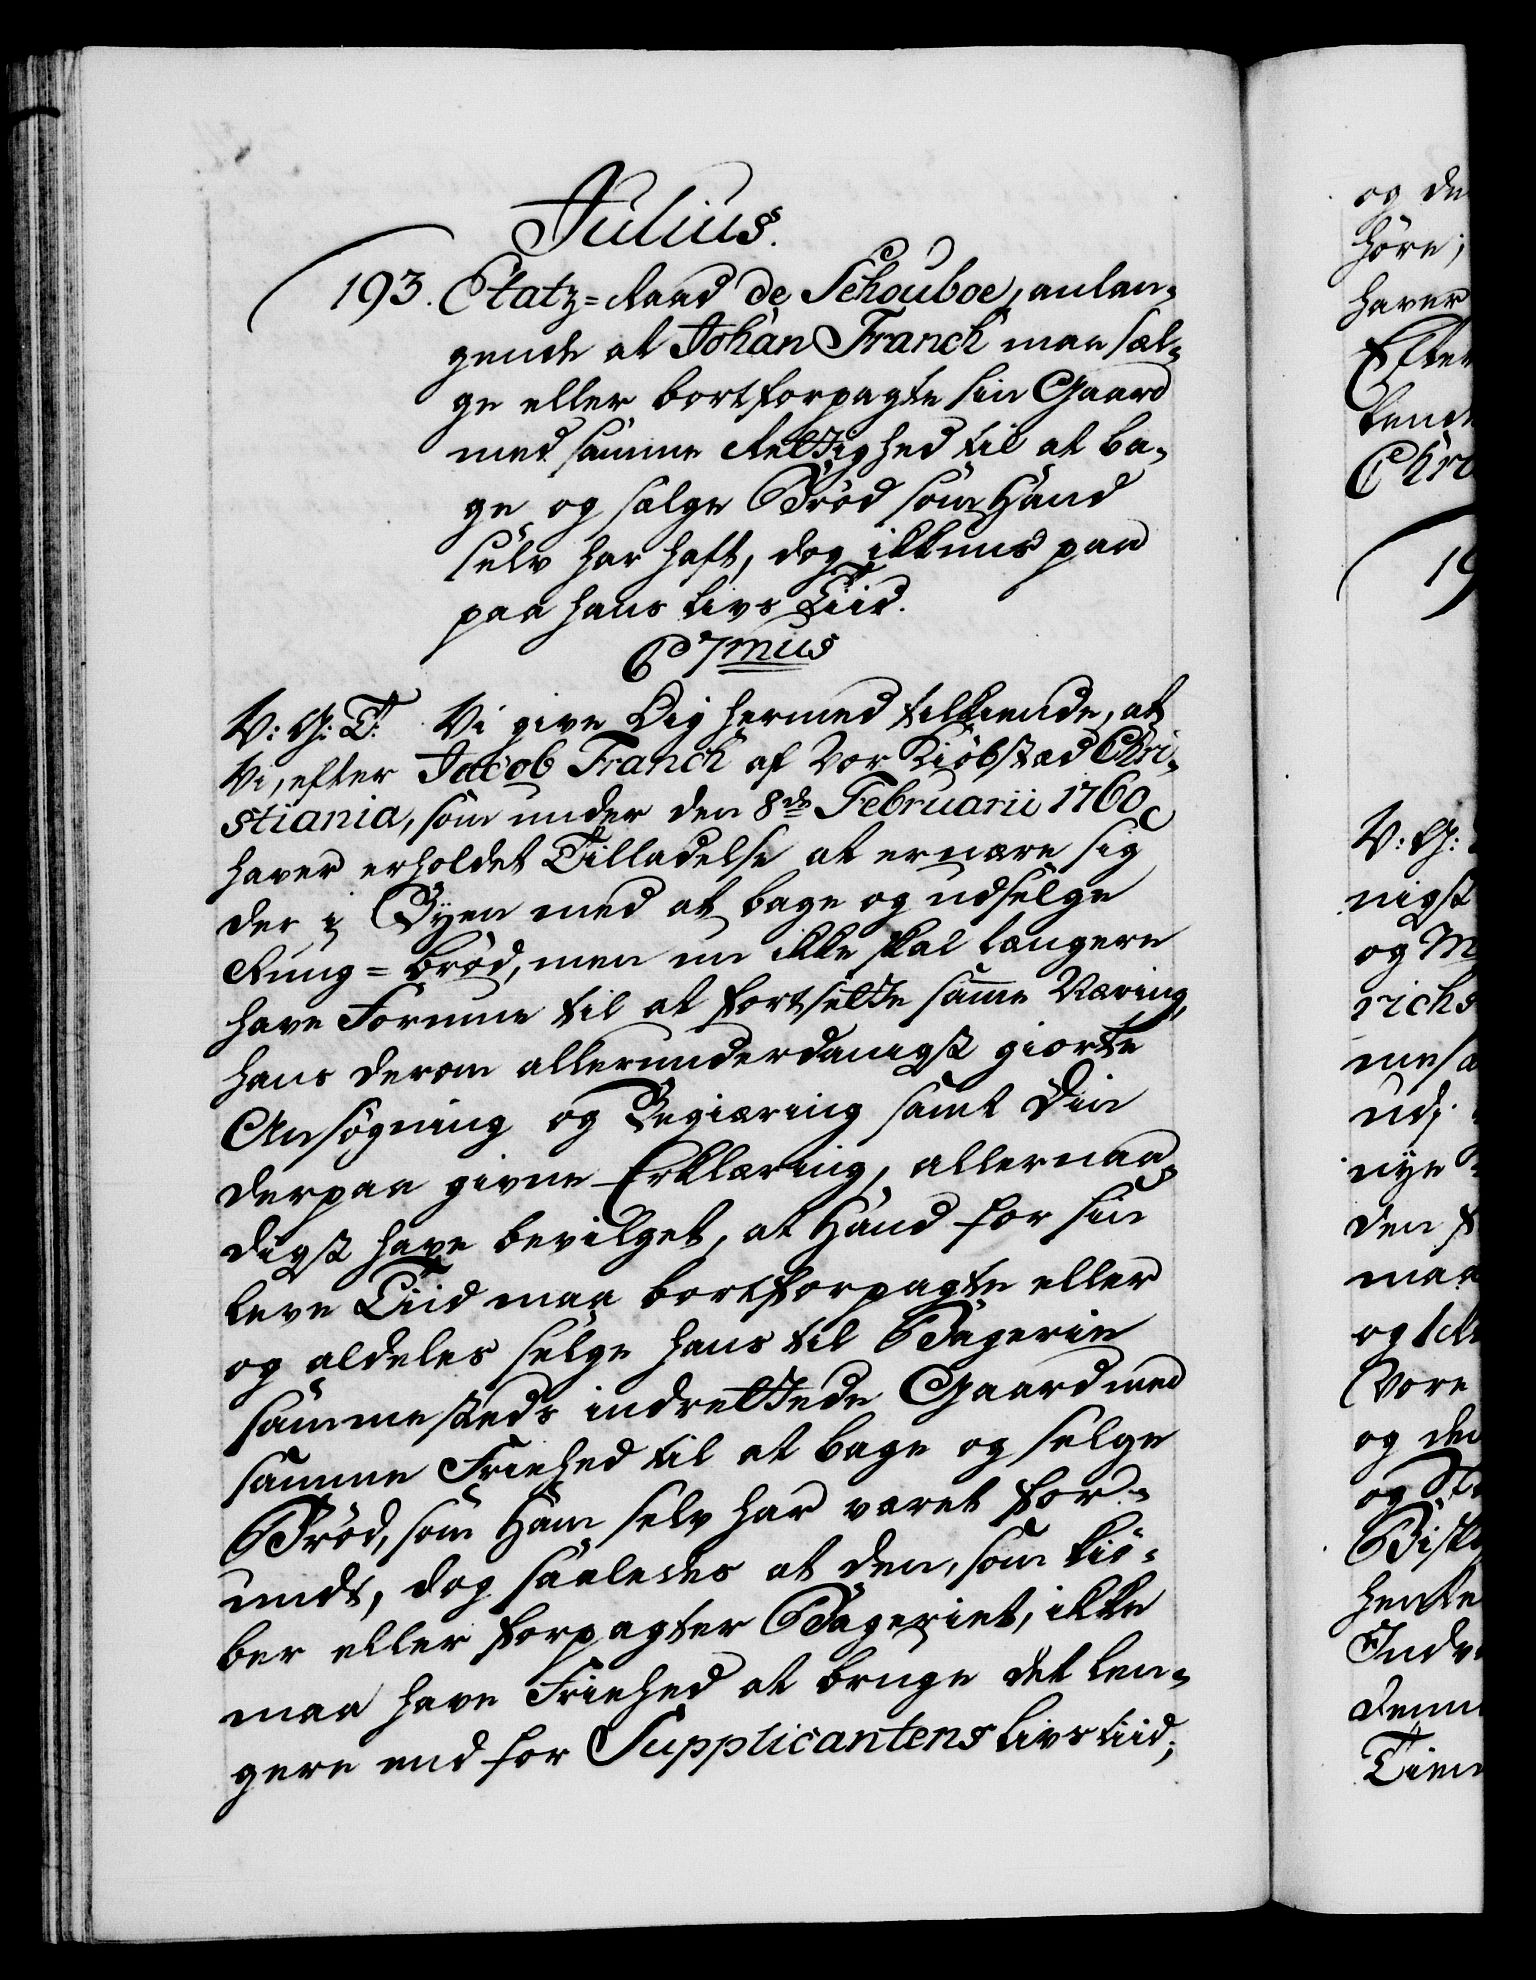 Julius.
193. Etatz=Raad de Schouboe, anlan-
gende at Johan Franck maa sæl-
ge eller bortforpagte sin Gaard
med samme Rettighed til at ba-
ge og sælge Brød som Hand
selv har haft, dog ikkuns paa
paa hans Livs Tiid.
V: G: T: Vi give Dig hermed tilkiende, at
Vi, efter Jacob Franck af Vor Kiøbstæd Chri-
stiania, som under den 8de Februarii 1760
haver erholdet Tilladelse at ernære sig
der i Byen med at bage og udselge
Rung=brød, men nu ikke skal længere
have Formue til at fortsette samme Næring,
hans derom allerunderdanigst giorte
Ansøgning og Begiæring samt Din
derpaa givne Erklæring, allernaa-
digst have bevilget, at Hand for sin
leve Tiid maa bortforpagte eller
og aldeles selge hans til Bagerie
sammesteds indrettede Gaard med
samme Friehed til at bage og selge
Brød, som Ham selv har været for-
undt, dog saaledes at den, som kiø-
ber eller forpagter Bageriet, ikke
maa have Friehed at bruge det len-
gere end for Supplicantens livs tiid;
og de
høre;
haver
Efter
tende
Chri
19
V: G:
nigst
og M
richs
mesa
udj
nye
den f
maa
og
Vore
og den
og
Bisk
hente
Indr
denn
Tien